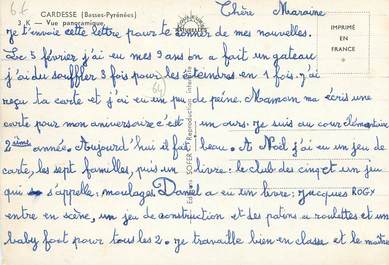 6 f
CARDESSE (Basses-Pyrénées)
3. K — Vue panoramique.
IMPRIMÉ
EN
FRANCE
Chère Maraine
je t'envoie cette lettre pour te donner de mes nouvelles.
Le 5 février j'ai eu mes 9 ans on a fait un gateau
j'ai du souffler 3 fois pour les éteindres en 1 fois. j'ai
reçu ta carte et j'ai eu un peu de peine. Maman m'a écris une
carte pour mon aniversaire c'est un ours. je suis au cour élémentaire
2ième année. Aujourd'hui il fait beau. A Noël j'ai eu un jeu de
carte, les sept familles, puis un livre: le club des cinq et un jeu
qui s'appelle: moulages. Daniel a eu un livre: jacques ROGY
entre en scène, un jeu de construction et des patins a roulettes et un
baby foot pour tous les 2. je travaille bien en classe et le maitre
64
Editions SOFER Reproduction interdite